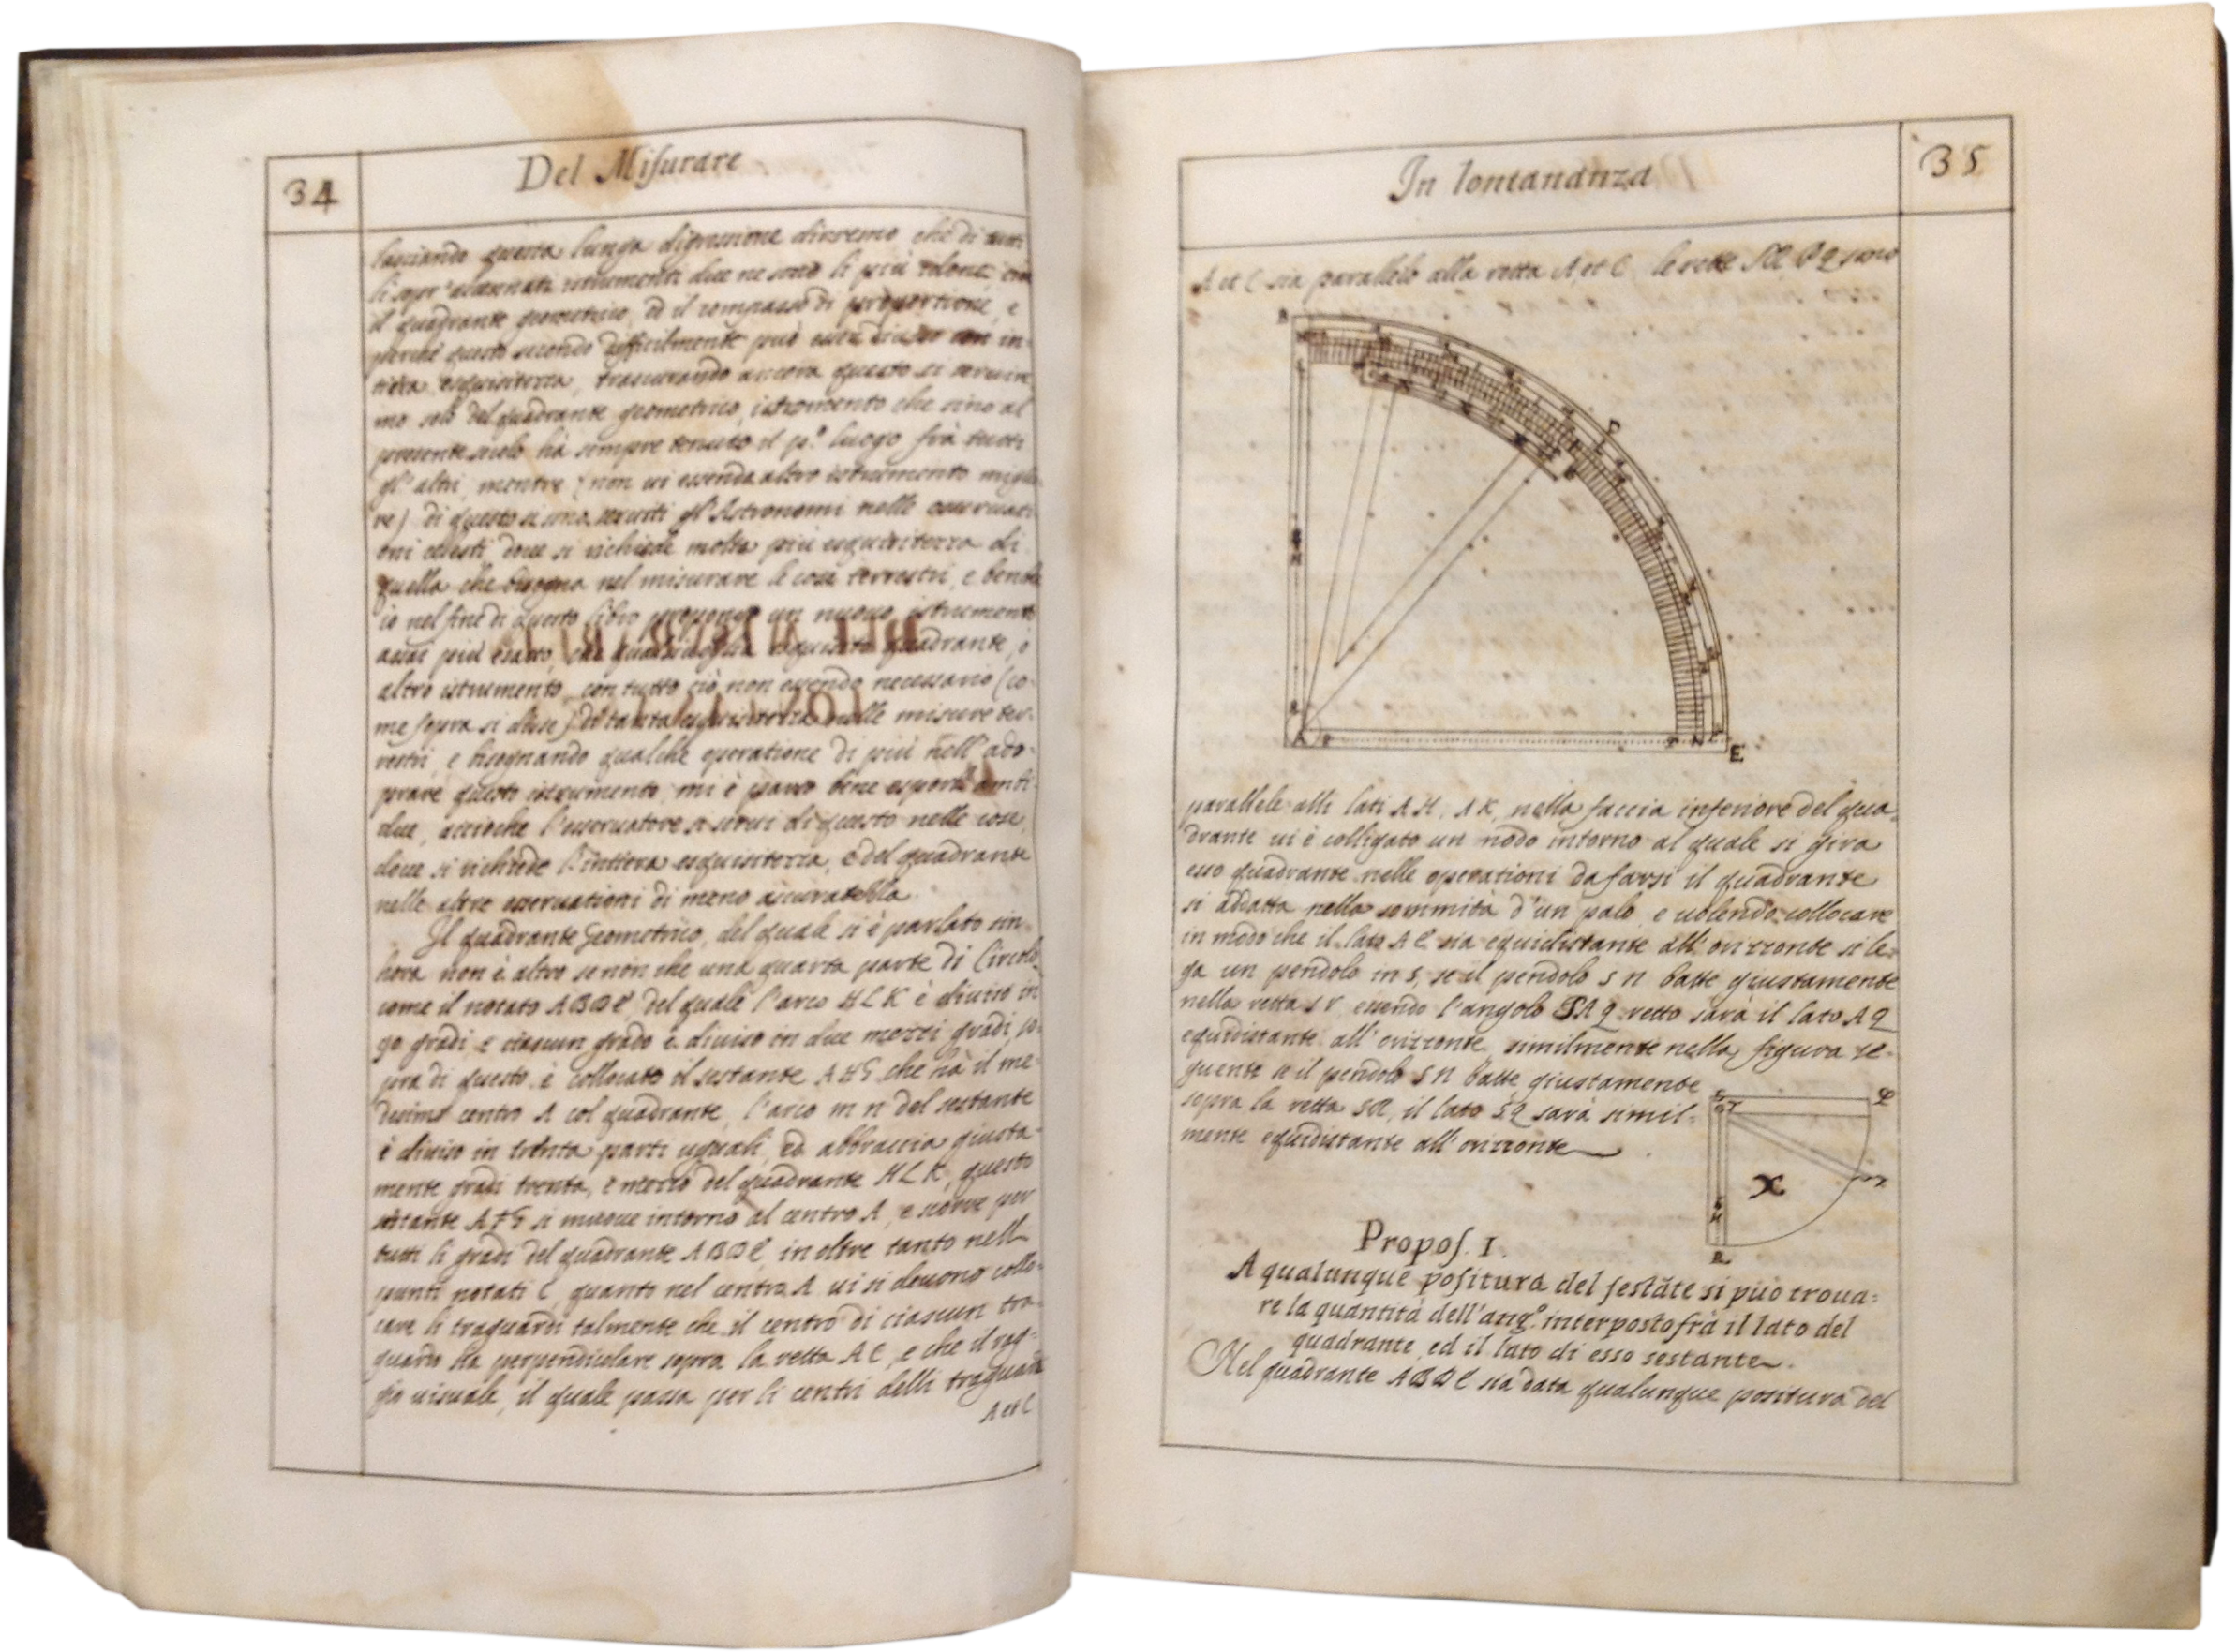 34
Del Misurare
lasciando questa lunga digressione diremo, che di tutti
li sopr' accennati istrumenti due ne sono li più
il quadrante geometrico, ed il compasso di proportione, e
perche questo secondo difficilmente può esser diuiso con in-
tiera esquisitezza, trascurando ancora questo si seruire
mo solo del quadrante geometrico, istromento che sino al
presente hà sempre tenuto il p.º luogo frà tutti
gl' altri, mentre (non ui essendo altro istrumento miglio
re) di questo si sono seruiti gl' Astronomi nelle osseruati
oni celesti doue si richiede molta più esquisitezza di
quella che bisogna nel misurare le cose terrestri, e benche
io nel fine di questo libro propongo un nuouo istrumento
assai più esatto, che qualsiuoglia esquisito quadrante, ò
altro istrumento, con tutto ciò non essendo necessario (co-
me sopra si disse) di tanta esquisitezza nelle misure ter-
restri, e bisognando qualche operatione di più nell' ado-
prare questo istrumento, mi è parso bene esporli ambi-
due, accioche l'osseruatore si serui di questo nelle cose,
doue si richiede l'intiera esquisitezza, e del quadrante
nelle altre osseruationi di meno
Il quadrante Geometrico, del quale si è parlato sin-
hora non è altro se non che una quarta parte di Circolo
come il notato ABDE, del quale l'arco HLK è diuiso in
90 gradi e ciascun grado è diuiso in due mezzi gradi, so-
pra di questo è collocato il sestante AFG che hà il me-
desimo centro A col quadrante, l'arco m n del sestante
è diuiso in trenta parti uguali, ed abbraccia giusta-
mente gradi trenta, e mezzo del quadrante HLK, questo
sestante AFG si muoue intorno al centro A, e scorre per
tutti li gradi del quadrante ABDE, in oltre tanto nell
punti notati C, quanto nel centro A ui si deuono collo-
care li traguardi talmente che il centro di ciascun tra-
guardo sia perpendicolare sopra la retta AC, e che il rag-
gio uisuale, il quale passa per li centri delli traguardi
A et C
In lontananza
35
A et C sia parallelo alla retta A et C le rette Sr, Pq sono
D
E
A
parallele alli lati AH, AK, nella faccia inferiore del qua-
drante ui è colligato un nodo intorno al quale si gira
esso quadrante nelle operationi da farsi il quadrante
si adatta nella sommità d'un palo, e uolendo collocare
in modo che il lato AE sia equidistante all' orizzonte si le-
ga un pendolo in S, se il pendolo S n batte giustamente
nella retta S r essendo l'angolo SAq retto sarà il lato Aq
equidistante all' orizzonte, similmente nella figura se-
guente se il pendolo S n batte giustamente
sopra la retta SR, il lato Sq sarà simil-
mente equidistante all' orizzonte
X
Propos. I.
A qualunque positura del sestãte si può troua=
re la quantità dell'ang.º interposto frà il lato del
quadrante, ed il lato di esso sestante.
Nel quadrante ABDE sia data qualunque positura del